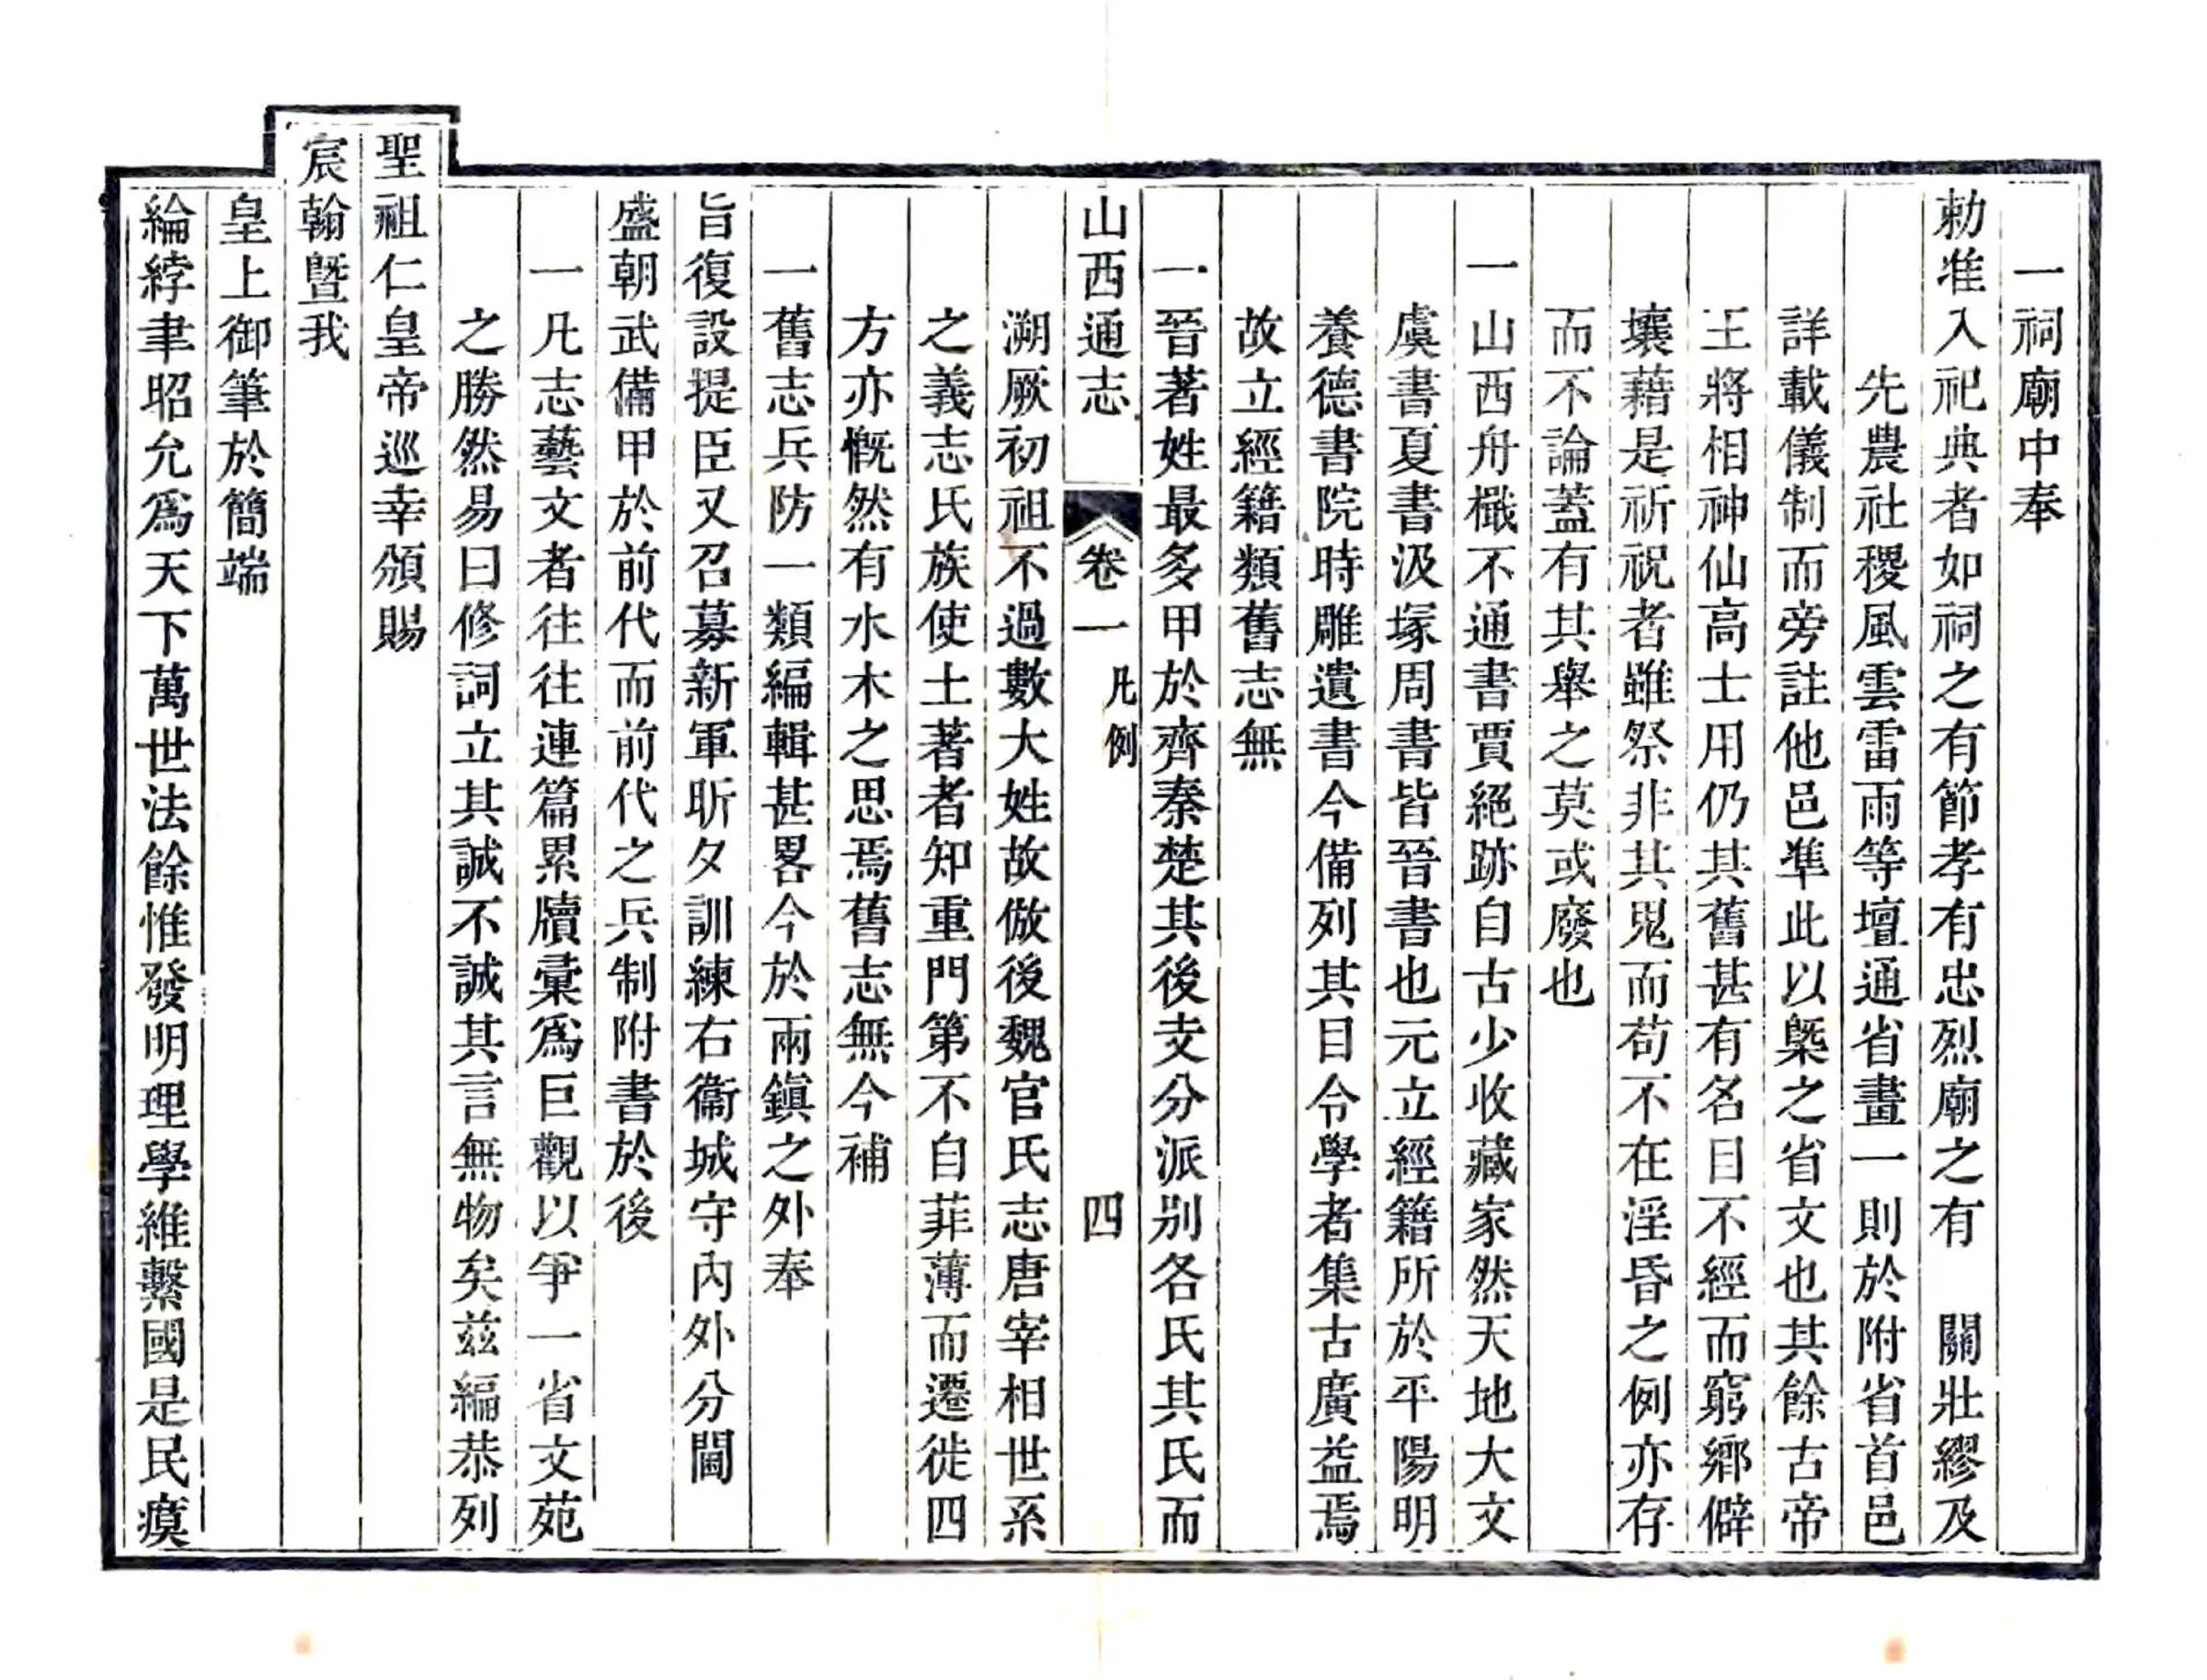 一祠廟中奉
勅准入祀典者如祠之有節孝有忠烈廟之有　關壯繆及
先農社稷風雲雷雨等壇通省畫一則於附省首邑
詳載儀制而旁註他邑準此以槩之省文也其餘古帝
王將相神仙高士用仍其舊甚有名目不經而窮鄉僻
壤藉是祈祝者雖祭非其鬼而苟不在淫昏之例亦存
而不論蓋有其舉之莫或廢也
一山西舟檝不通書賈絕跡自古少收藏家然天地大文
虞書夏書汲塚周書皆晉書也元立經籍所於平陽明
養德書院時雕遺書今備列其目令學者集古廣益焉
故立經籍類舊志無
一晉著姓最多甲於齊秦楚其後支分派別各氏其氏而
山西通志　卷一　凡例　四
溯厥初祖不過數大姓故倣後魏官氏志唐宰相世系
之義志氏族使土著者知重門第不自菲薄而遷徙四
方亦慨然有水木之思焉舊志無今補
一舊志兵防一類編輯甚畧今於兩鎭之外奉
旨復設提臣又召募新軍昕夕訓練右衞城守內外分閫
盛朝武備甲於前代而前代之兵制附書於後
一凡志藝文者往往連篇累牘彙爲巨觀以爭一省文苑
之勝然易曰修詞立其誠不誠其言無物矣茲編恭列
聖祖仁皇帝巡幸頒賜
宸翰曁我
皇上御筆於簡端
綸綍聿昭允爲天下萬世法餘惟發明理學維繫國是民瘼